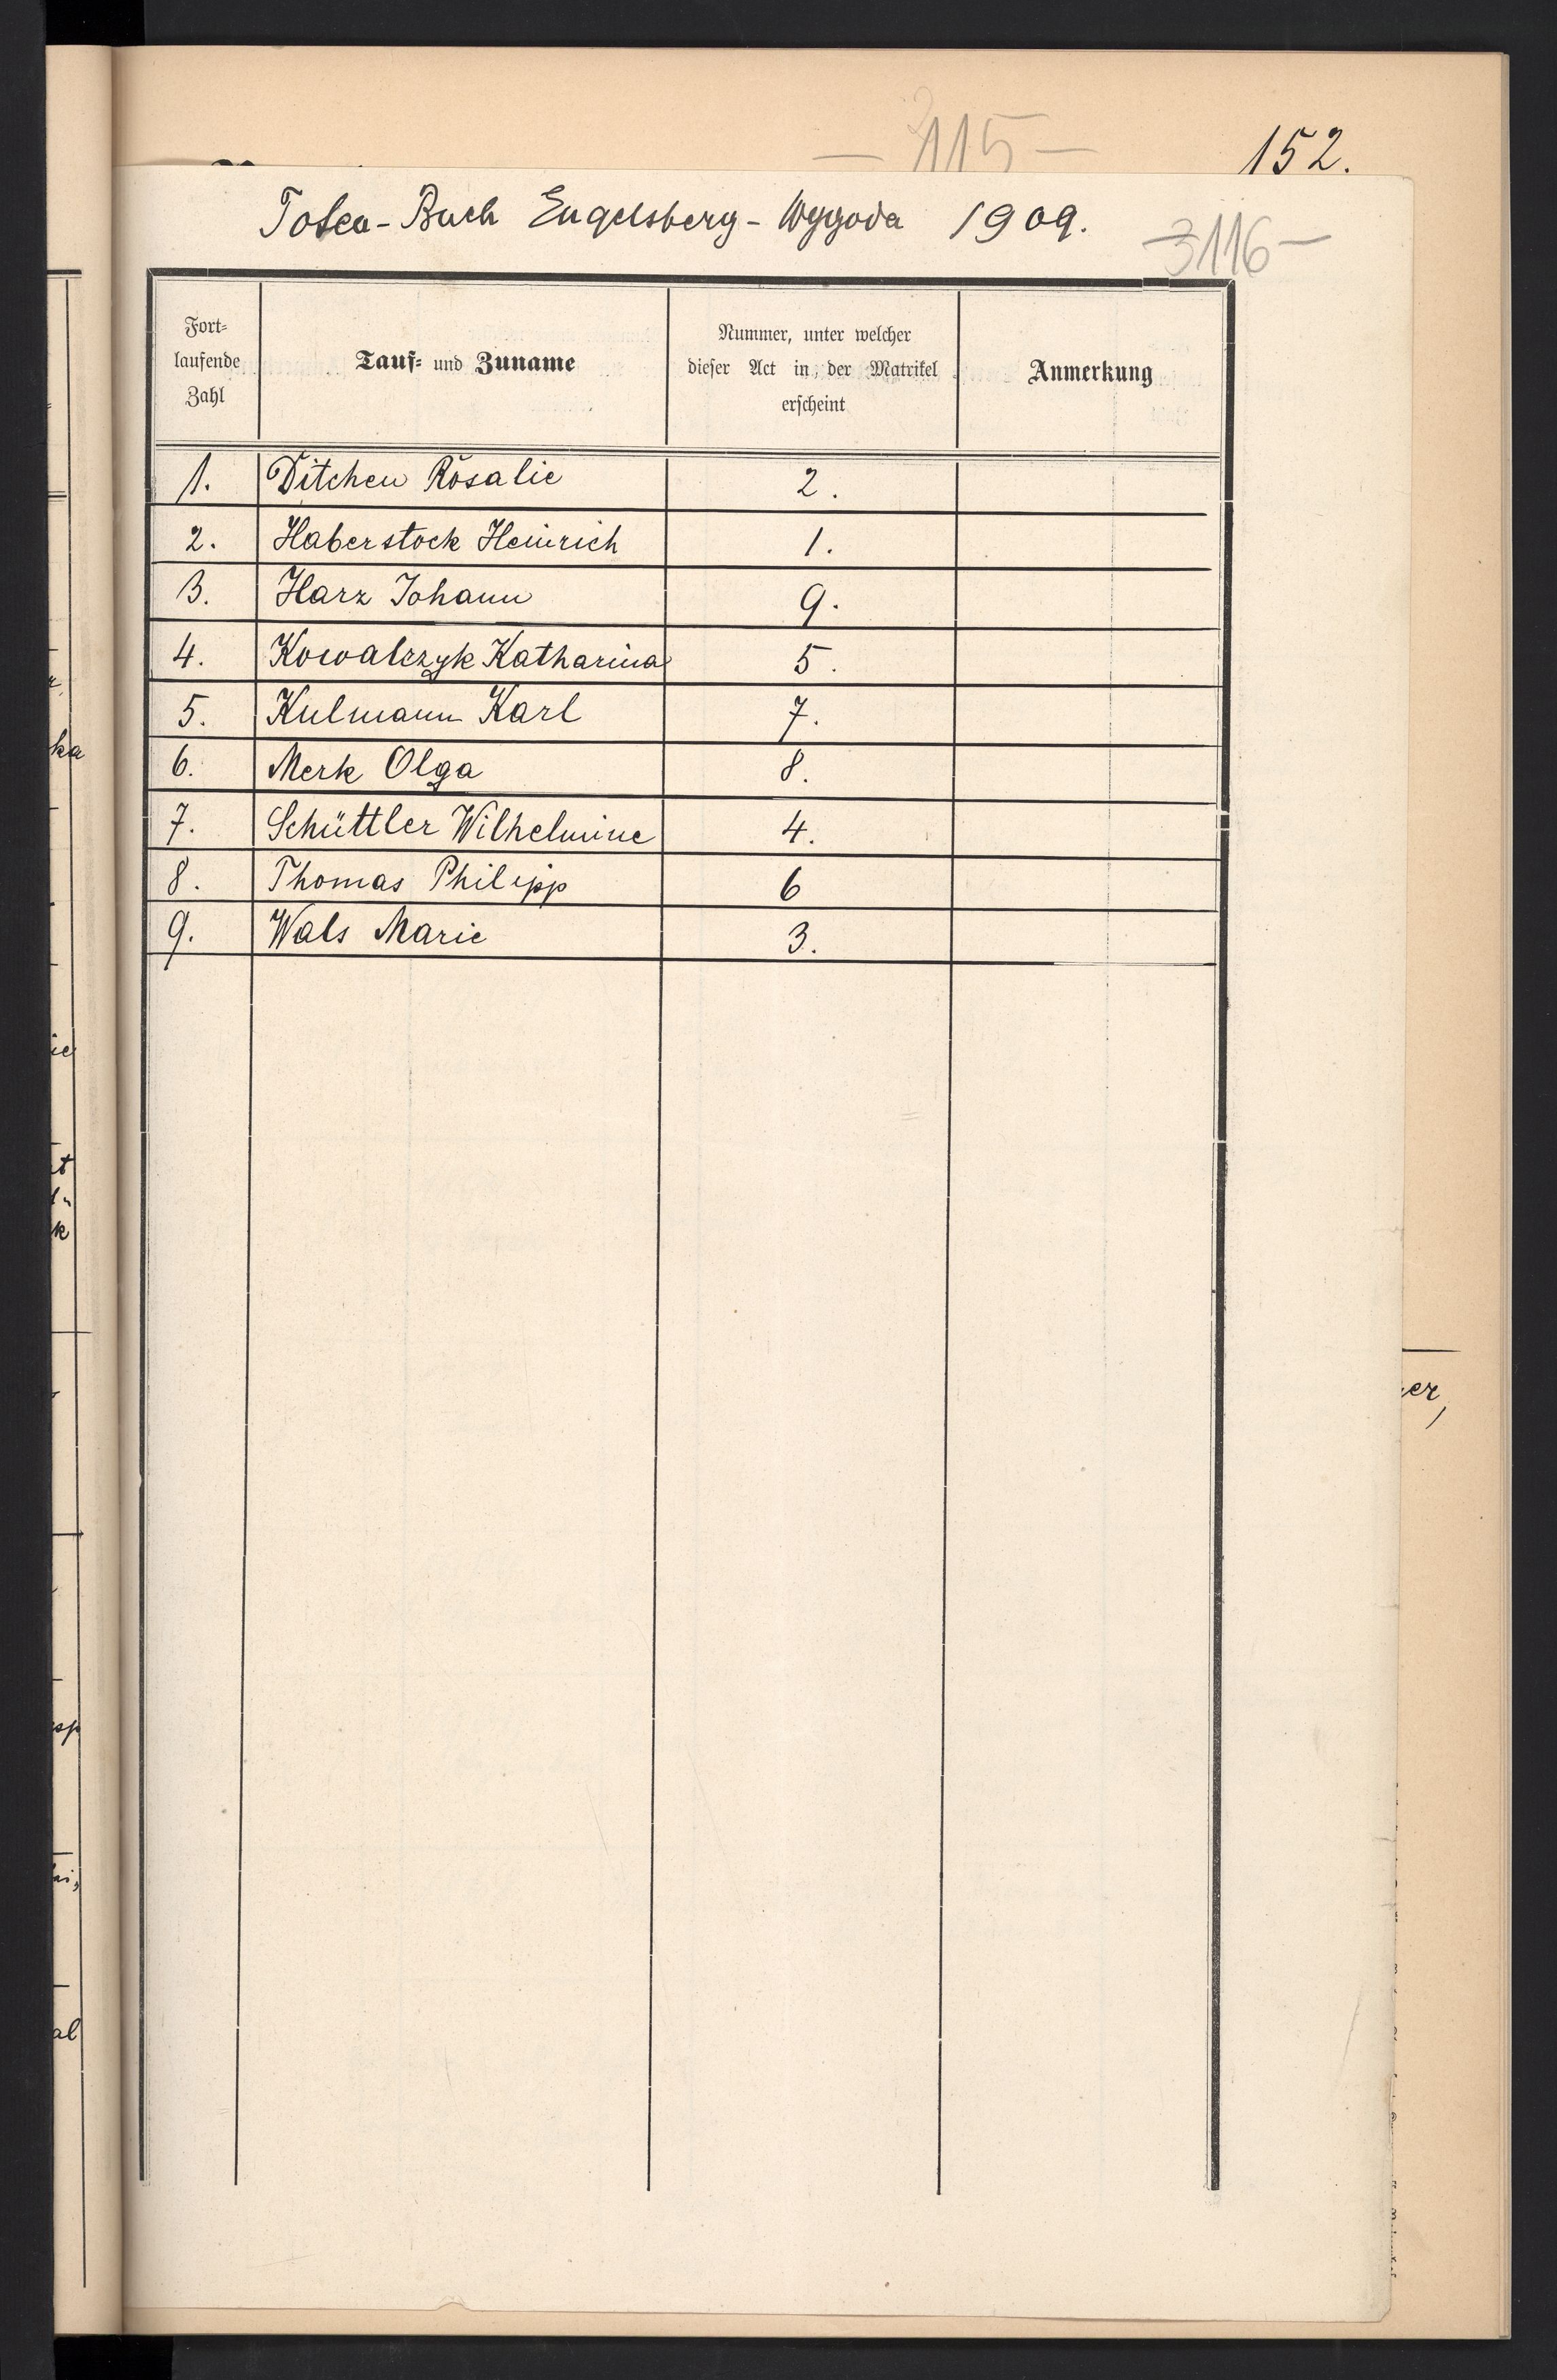 115
152.
Toten-Buch Engelsberg-Wygoda 1909.
3116
Fort-
laufende
Zahl
Tauf- und Zuname
Nummer, unter welcher
dieser Act in der Matrikel
erscheint
Anmerkung
1. Ditchen Rosalie 2.
2. Haberstock Heinrich 1.
3. Harz Johann 9.
4. Kowalczyk Katharina 5.
5. Kulmann Karl 7.
6. Merk Olga 8.
7. Schüttler Wilhelmine 4.
8. Thomas Philipp 6
9. Wals Marie 3.
ka
ie
er,
al